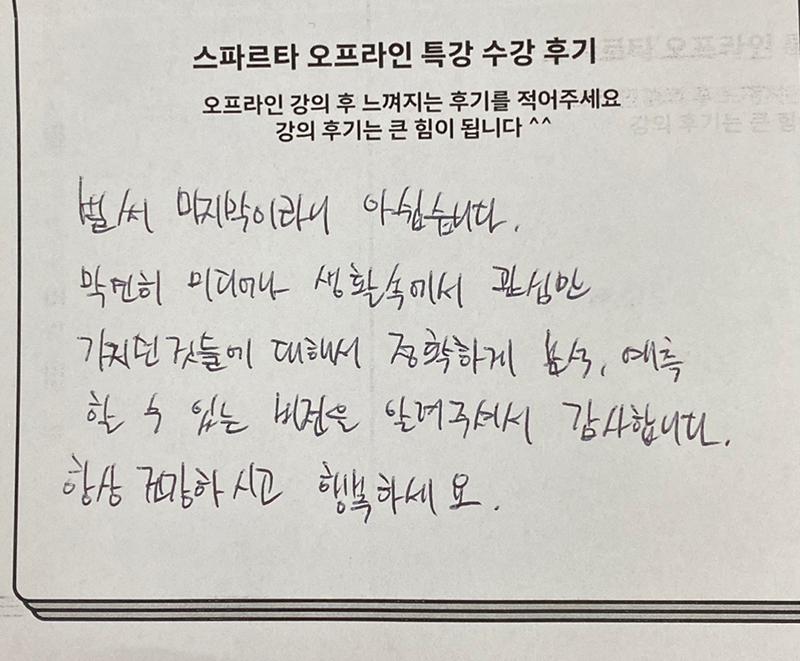 스파르타 오프라인 특강 수강 후기
오프라인 강의 후 느껴지는 후기를 적어주세요
강의 후기는 큰 힘이 됩니다 ^^
벌써 마지막이라니 아쉽습니다.
막연히 미디어나 생활속에서 관심만
가지던 것들에 대해서 정확하게 분석, 예측
할 수 있는 비전을 알려주셔서 감사합니다.
항상 건강하시고 행복하세요.